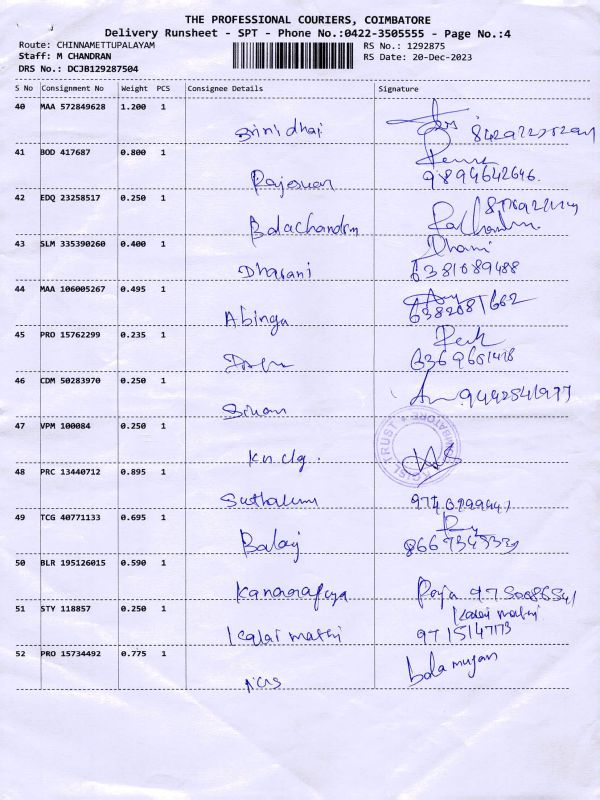 THE PROFESSIONAL COURIERS, COIMBATORE
Delivery Runsheet - SPT - Phone No.:0422-3505555 - Page No.:4
Route: CHINNAMETTUPALAYAM RS No.: 1292875
Staff: M CHANDRAN RS Date: 20-Dec-2023
DRS No.: DCJB129287504
S No Consignment No Weight PCS Consignee Details Signature
40 MAA 572849628 1.200 1
Srinidhai
41 BOD 417687 0.800 1
Rajeswari 9894642646.
42 EDQ 23258517 0.250 1
Balachandrn
43 SLM 335390260 0.400 1 Dhani
Dharani 6381089488
44 MAA 106005267 0.495 1
Abinga 6382081662
45 PRO 15762299 0.235 1
6369651418
46 CDM 50283970 0.250 1 9442541977
47 VPM 100084 0.250 1
TRUST
Kn clg.
48 PRC 13440712 0.895 1
49 TCG 40771133 0.695 1
Balaj
50 BLR 195126015 0.590 1
Poja 9750086541
51 STY 118857 0.250 1 Kalai mathi
Kalai mathi 9715147173
52 PRO 15734492 0.775 1 bala mugan